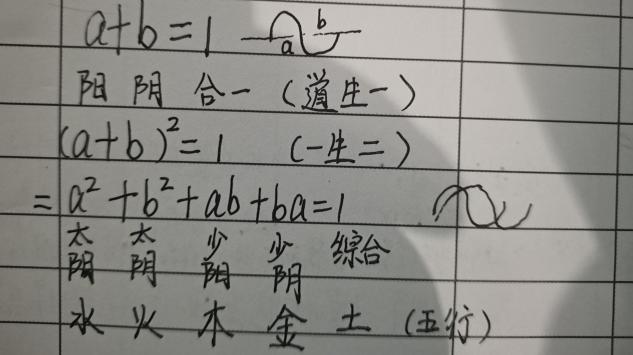 a+b=1 a b
阳 阴 合一 (道生一)
(a+b)²=1 (一生二)
=a²+b²+ab+ba=1
太阳 太阴 少阳 少阴 综合
水 火 木 金 土 (五行)